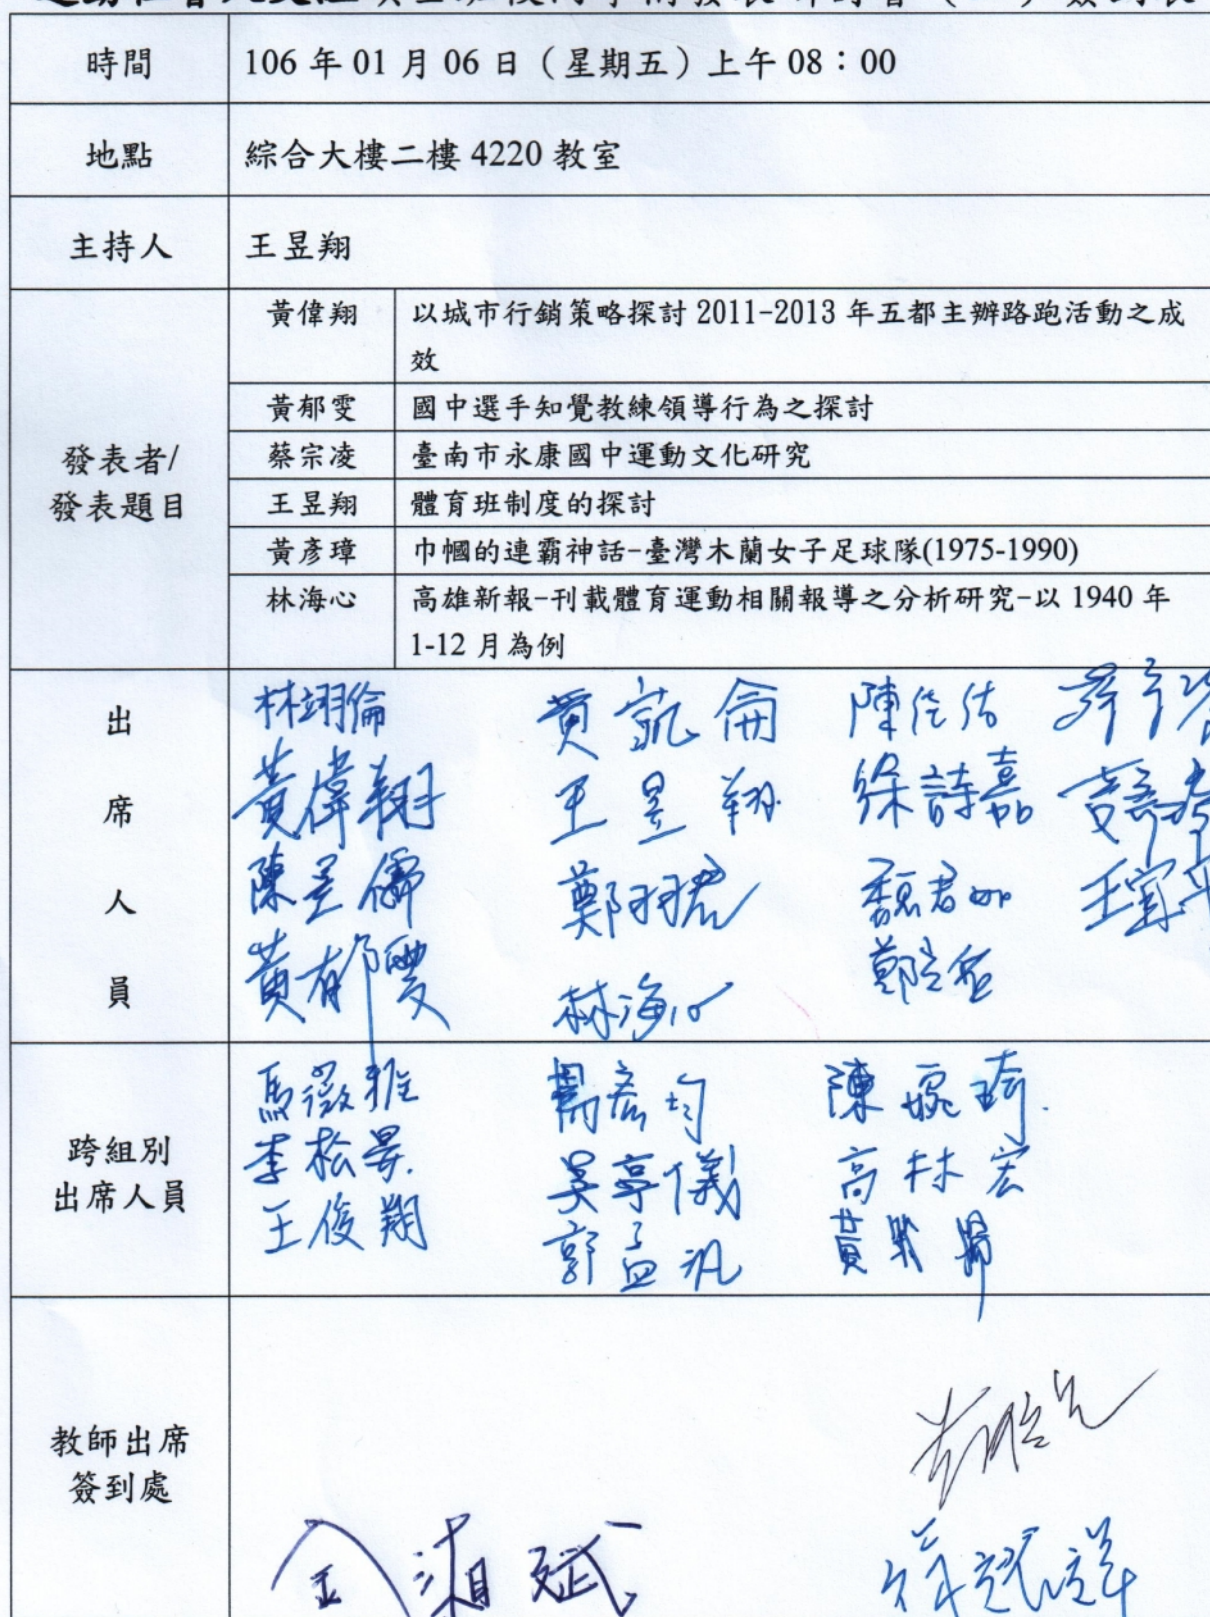 時間 106 年 01 月 06 日（星期五）上午 08：00
地點 綜合大樓二樓 4220 教室
主持人 王昱翔
發表者/
發表題目
黃偉翔 以城市行銷策略探討 2011-2013 年五都主辦路跑活動之成
效
黃郁雯 國中選手知覺教練領導行為之探討
蔡宗凌 臺南市永康國中運動文化研究
王昱翔 體育班制度的探討
黃彥璋 巾幗的連霸神話-臺灣木蘭女子足球隊(1975-1990)
林海心 高雄新報-刊載體育運動相關報導之分析研究-以 1940 年
1-12 月為例
出
席
人
員
林翊倫 黃凱侖
黃偉翔 王昱翔 徐詩嘉
魏君如 王宜平
黃郁雯 林海心
跨組別
出席人員
馬薇雅
李松晏 吳亭儀 高林宏
王俊翔 郭孟汎
教師出席
簽到處
金湘斌